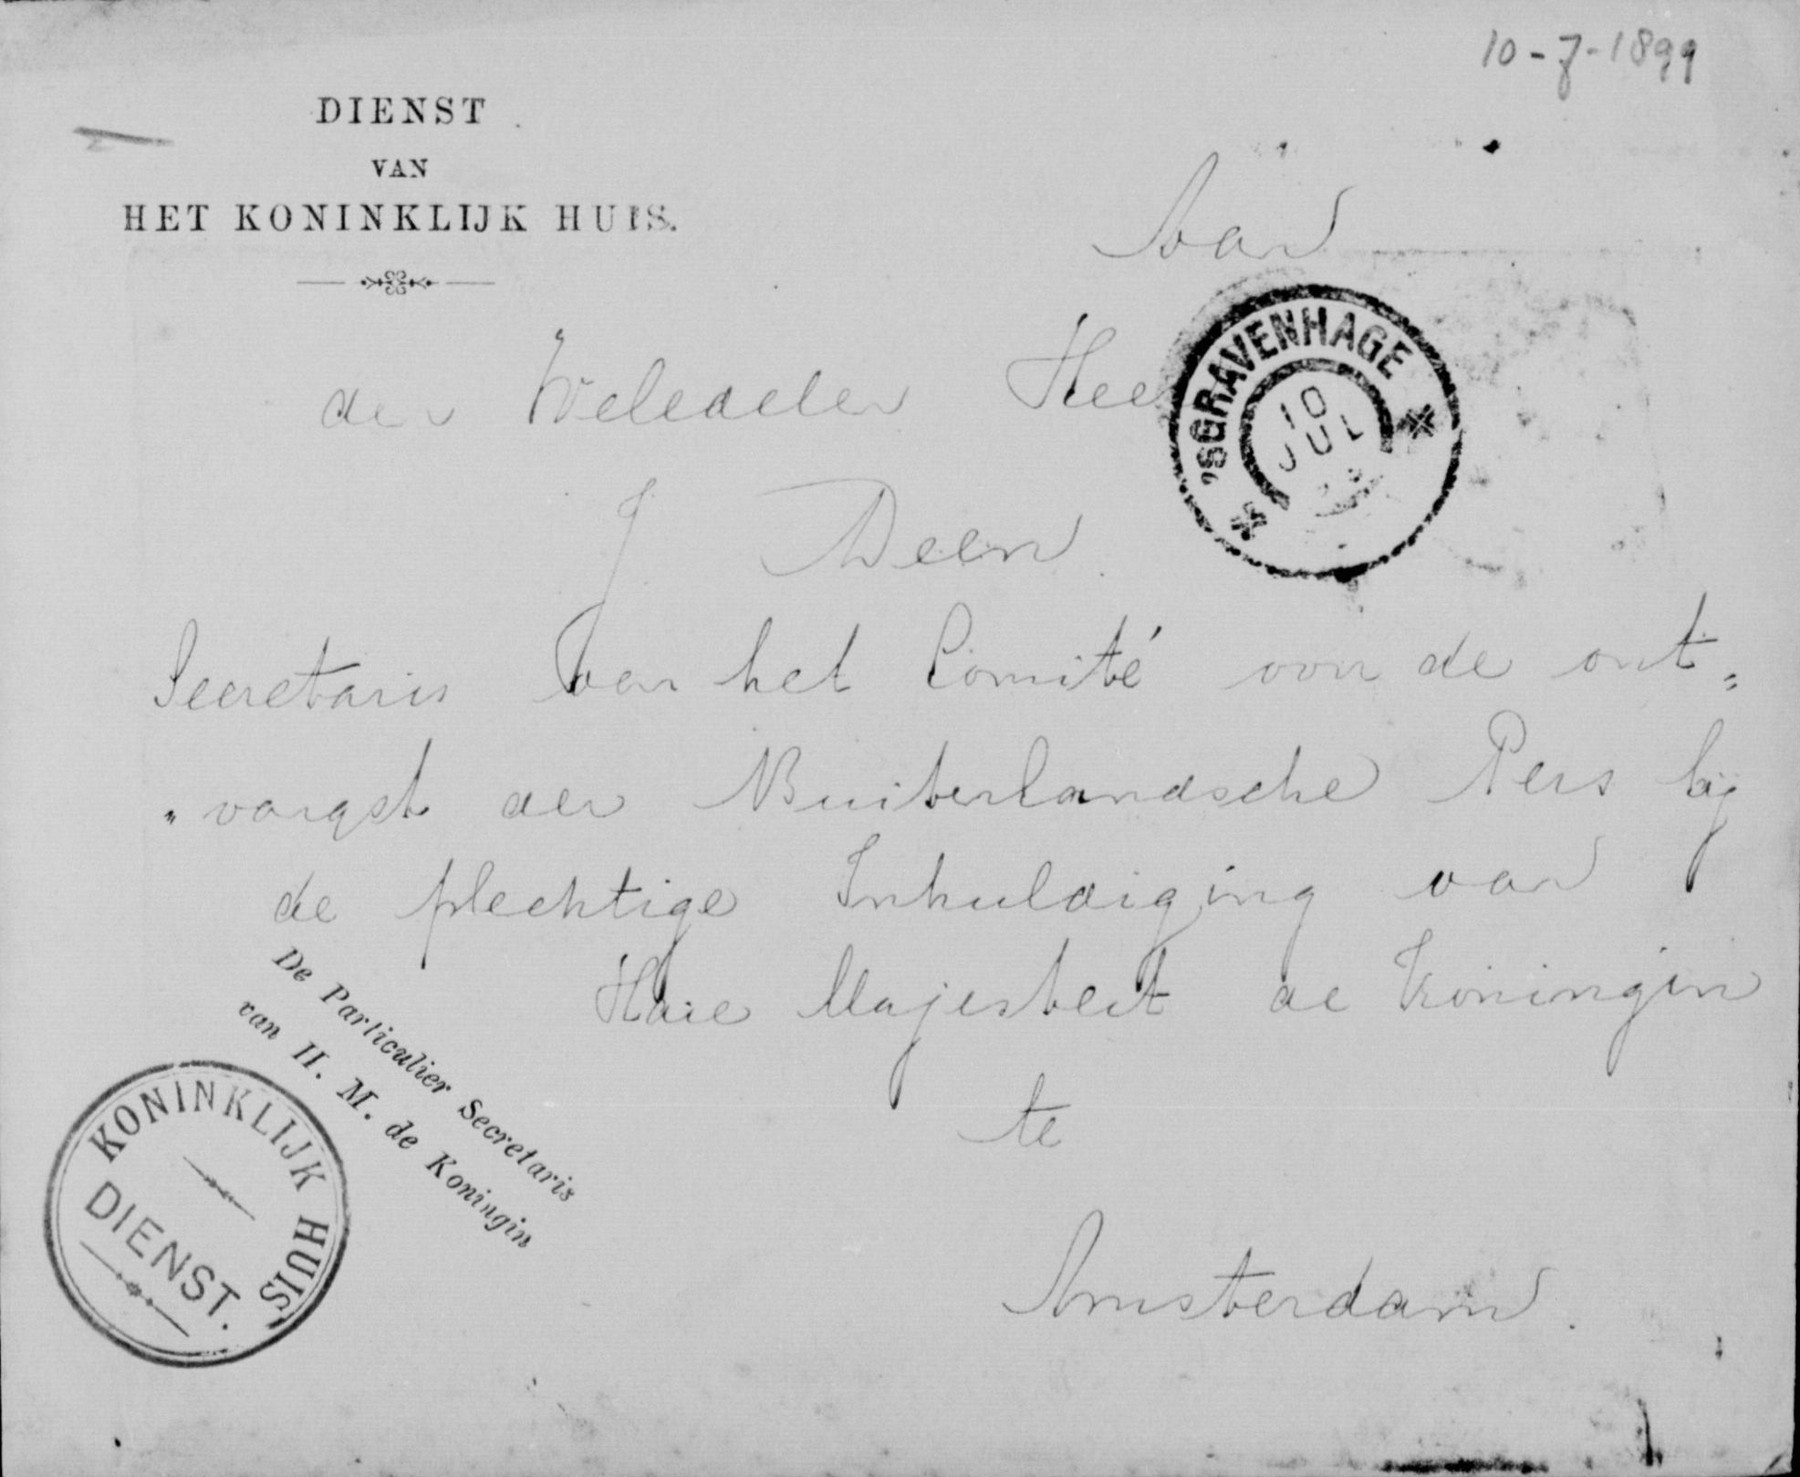 10-7-1899
DIENST
VAN
HET KONINKLIJK HUIS.
Aan
den Weledelen Heer
J Deen
Secretaris van het Comité voor de ont„
„vangst der Buitenlandsche Pers bij
de plechtige Inhuldiging van
Hare Majesteit de Koningin
te
Amsterdam.
'SGRAVENHAGE
10
JUL
De Particulier Secretaris
van H. M. de Koningin
KONINKLIJK HUIS
DIENST.